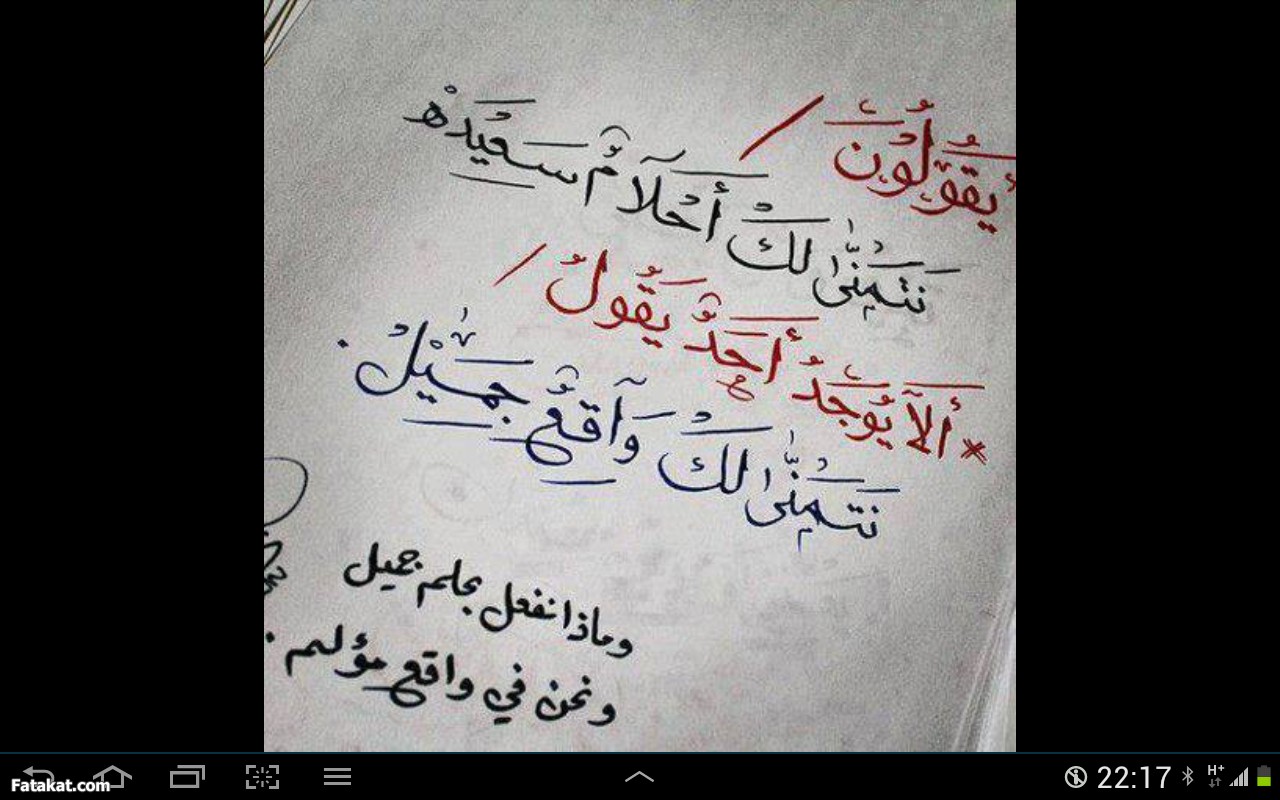 أيقولون /
نتمنى لك أحلام سعيده
* ألا يوجد أحد يقول /
نتمنى لك واقع جميل .
وماذا نفعل بحلم جميل
ونحن في واقع مؤلم .
Fatakat.com
22:17
H+